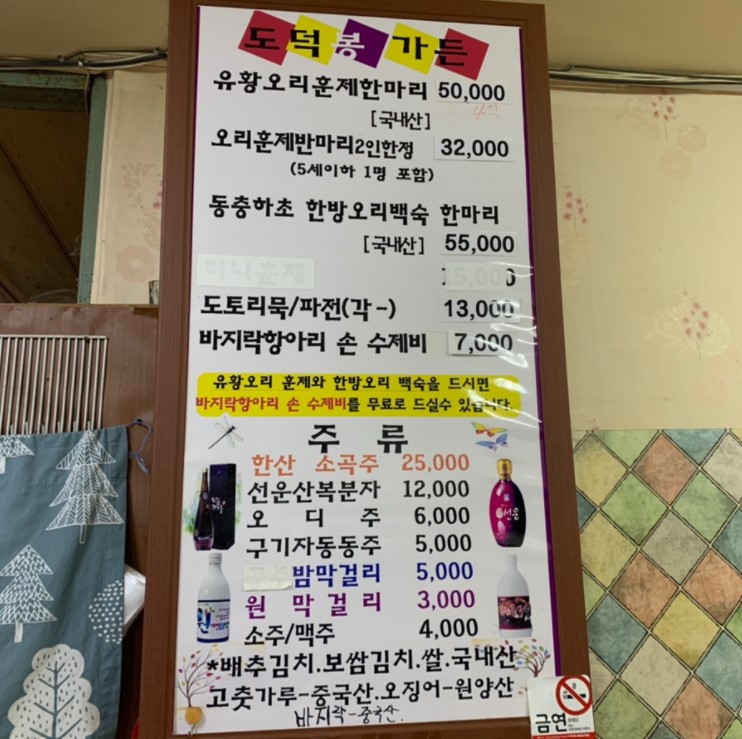 도덕봉 가든
유황오리훈제한마리 50,000
[국내산]
오리훈제반마리2인한정 32,000
(5세이하 1명 포함)
동충하초 한방오리백숙 한마리
[국내산] 55,000
미니훈제 15,000
도토리묵/파전(각-) 13,000
바지락항아리 손 수제비 7,000
유황오리 훈제와 한방오리 백숙을 드시면
바지락항아리 손 수제비를 무료로 드실수 있습니다.
주 류
한산 소곡주 25,000
선운산복분자 12,000
오 디 주 6,000
구기자동동주 5,000
밤막걸리 5,000
원 막걸리 3,000
소주/맥주 4,000
*배추김치.보쌈김치.쌀.국내산
고춧가루-중국산.오징어-원양산
바지락-중국산.
금연